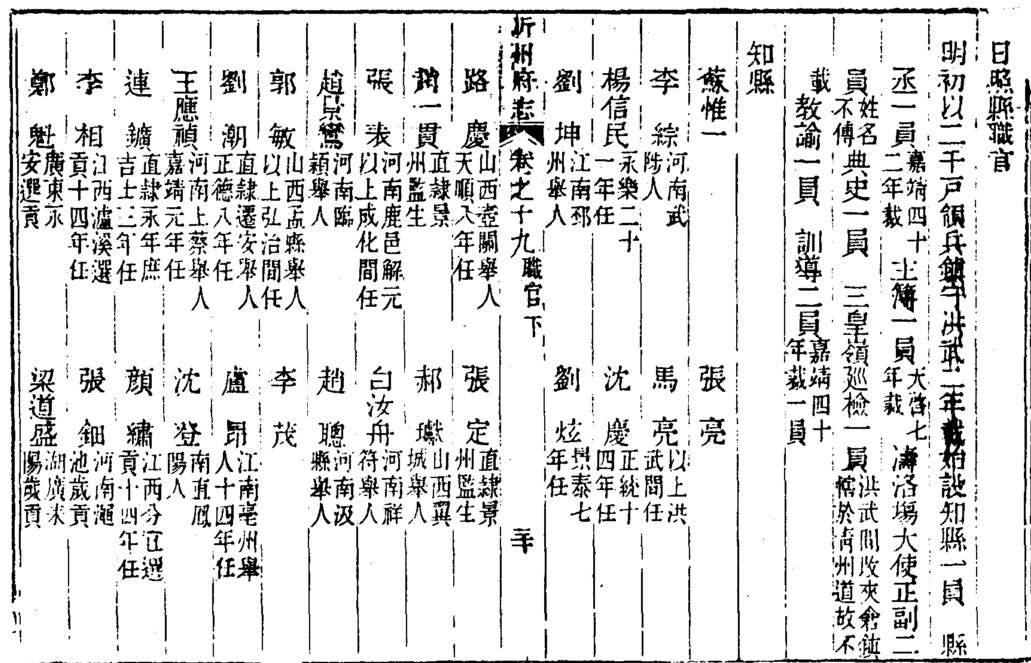 日照縣職官
明初以二千戶領兵鎮守洪武二年裁始設知縣一員 縣
丞一員嘉靖四十二年裁 主簿一員天啓七年裁 濤洛場大使正副二
員姓名不傳 典史一員 三皇嶺廵檢一員洪武間改夾倉鎮轄於靑州道故不
載 教諭一員 訓導二員嘉靖四十年裁一員
知縣
蘇惟一 張亮
李綜河南武陟人 馬亮以上洪武間任
楊信民永樂二十一年任 沈慶正統十四年任
劉坤江南邳州舉人 劉炫景泰七年任
沂州府志 卷之十九 職官下 三十
路慶山西壺關舉人天順八年任 張定直隷景州監生
一貫直隷景州監生 郝獻山西翼城舉人
張表河南鹿邑解元以上成化間任 白汝舟河南祥符舉人
趙景鸞河南臨潁舉人 趙聰河南汲縣舉人
郭敏山西盂縣舉人以上弘治間任 李茂
劉潮直隷遷安舉人正德八年任 盧昂江南亳州舉人十四年任
王應禎河南上蔡舉人嘉靖元年任 沈登南直鳳陽人
連鑛直隷永年庶吉士三年任 顏繡江西分宜選貢十四年任
李相江西瀘溪選貢十四年任 張鈿河南澠池歲貢
鄭魁廣東永安選貢 梁道盛湖廣陽歲貢